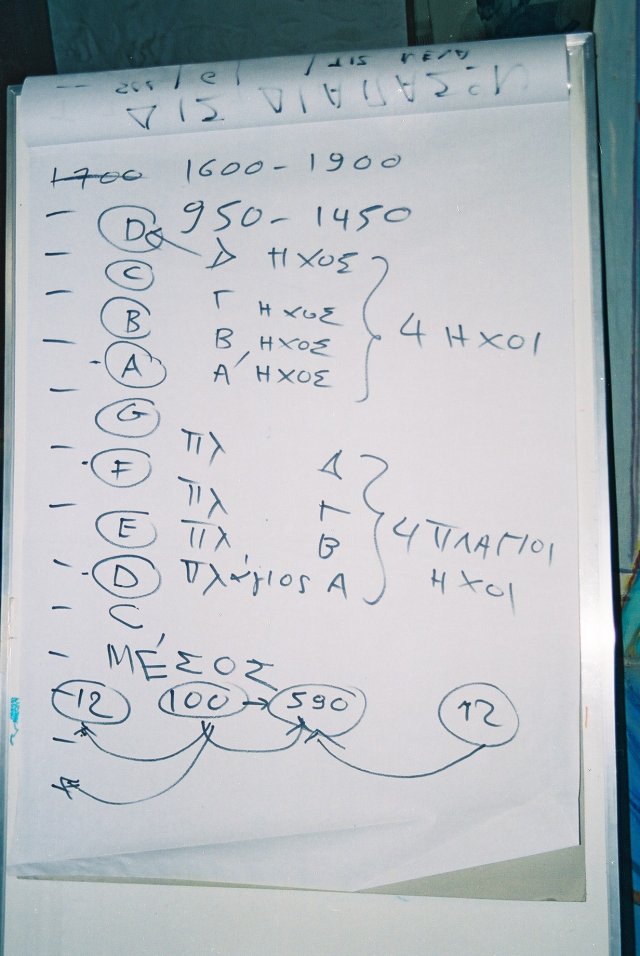 ΔΙΣ ΔΙΑΠΑΣΩΝ
1700 1600-1900
950-1450
D Δ ΗΧΟΣ
C
B Γ ΗΧΟΣ
4 ΗΧΟΙ
Β ΗΧΟΣ
A Α΄ ΗΧΟΣ
G
F πλ Δ
πλ Γ
E πλ Β
4 ΠΛΑΓΙΟΙ
ΗΧΟΙ
D πλάγιος Α
C
ΜΈΣΟΣ
-12 100 → 590 12